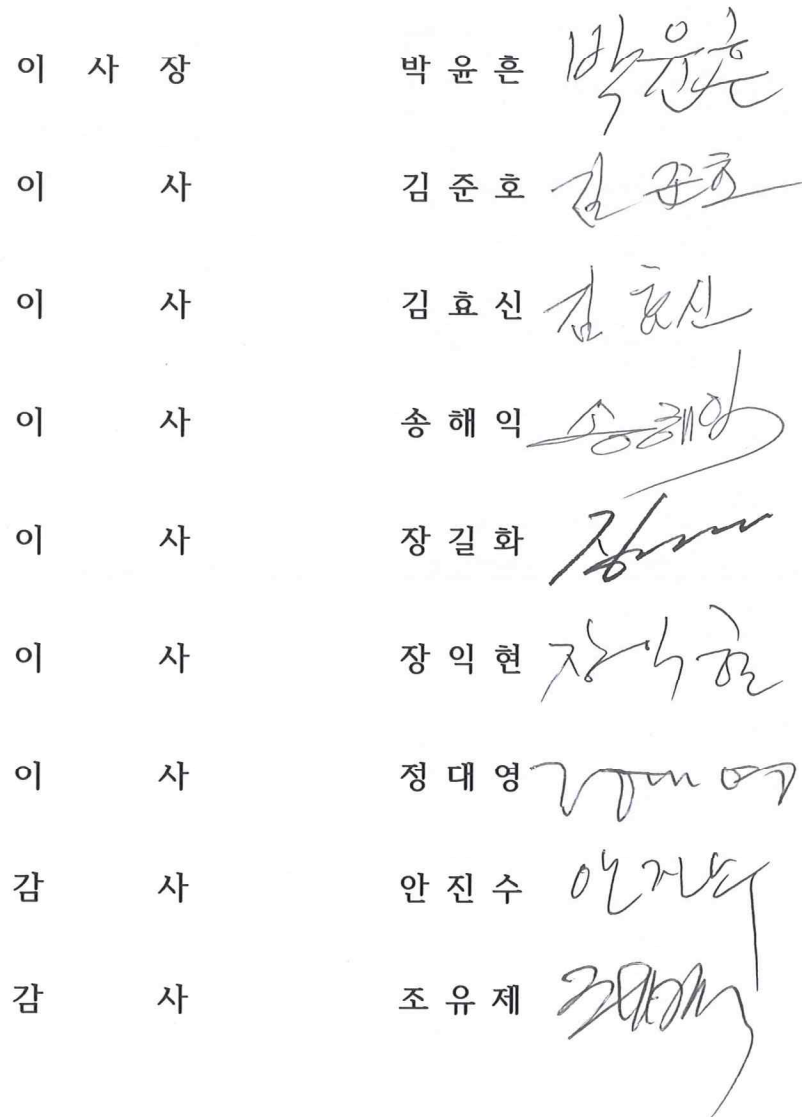 이 사 장 박 윤 흔 박윤흔
이 사 김 준 호 김준호
이 사 김 효 신 김효신
이 사 송 해 익 송해익
이 사 장 길 화 장
이 사 장 익 현 장익현
이 사 정 대 영
감 사 안 진 수 안진수
감 사 조 유 제